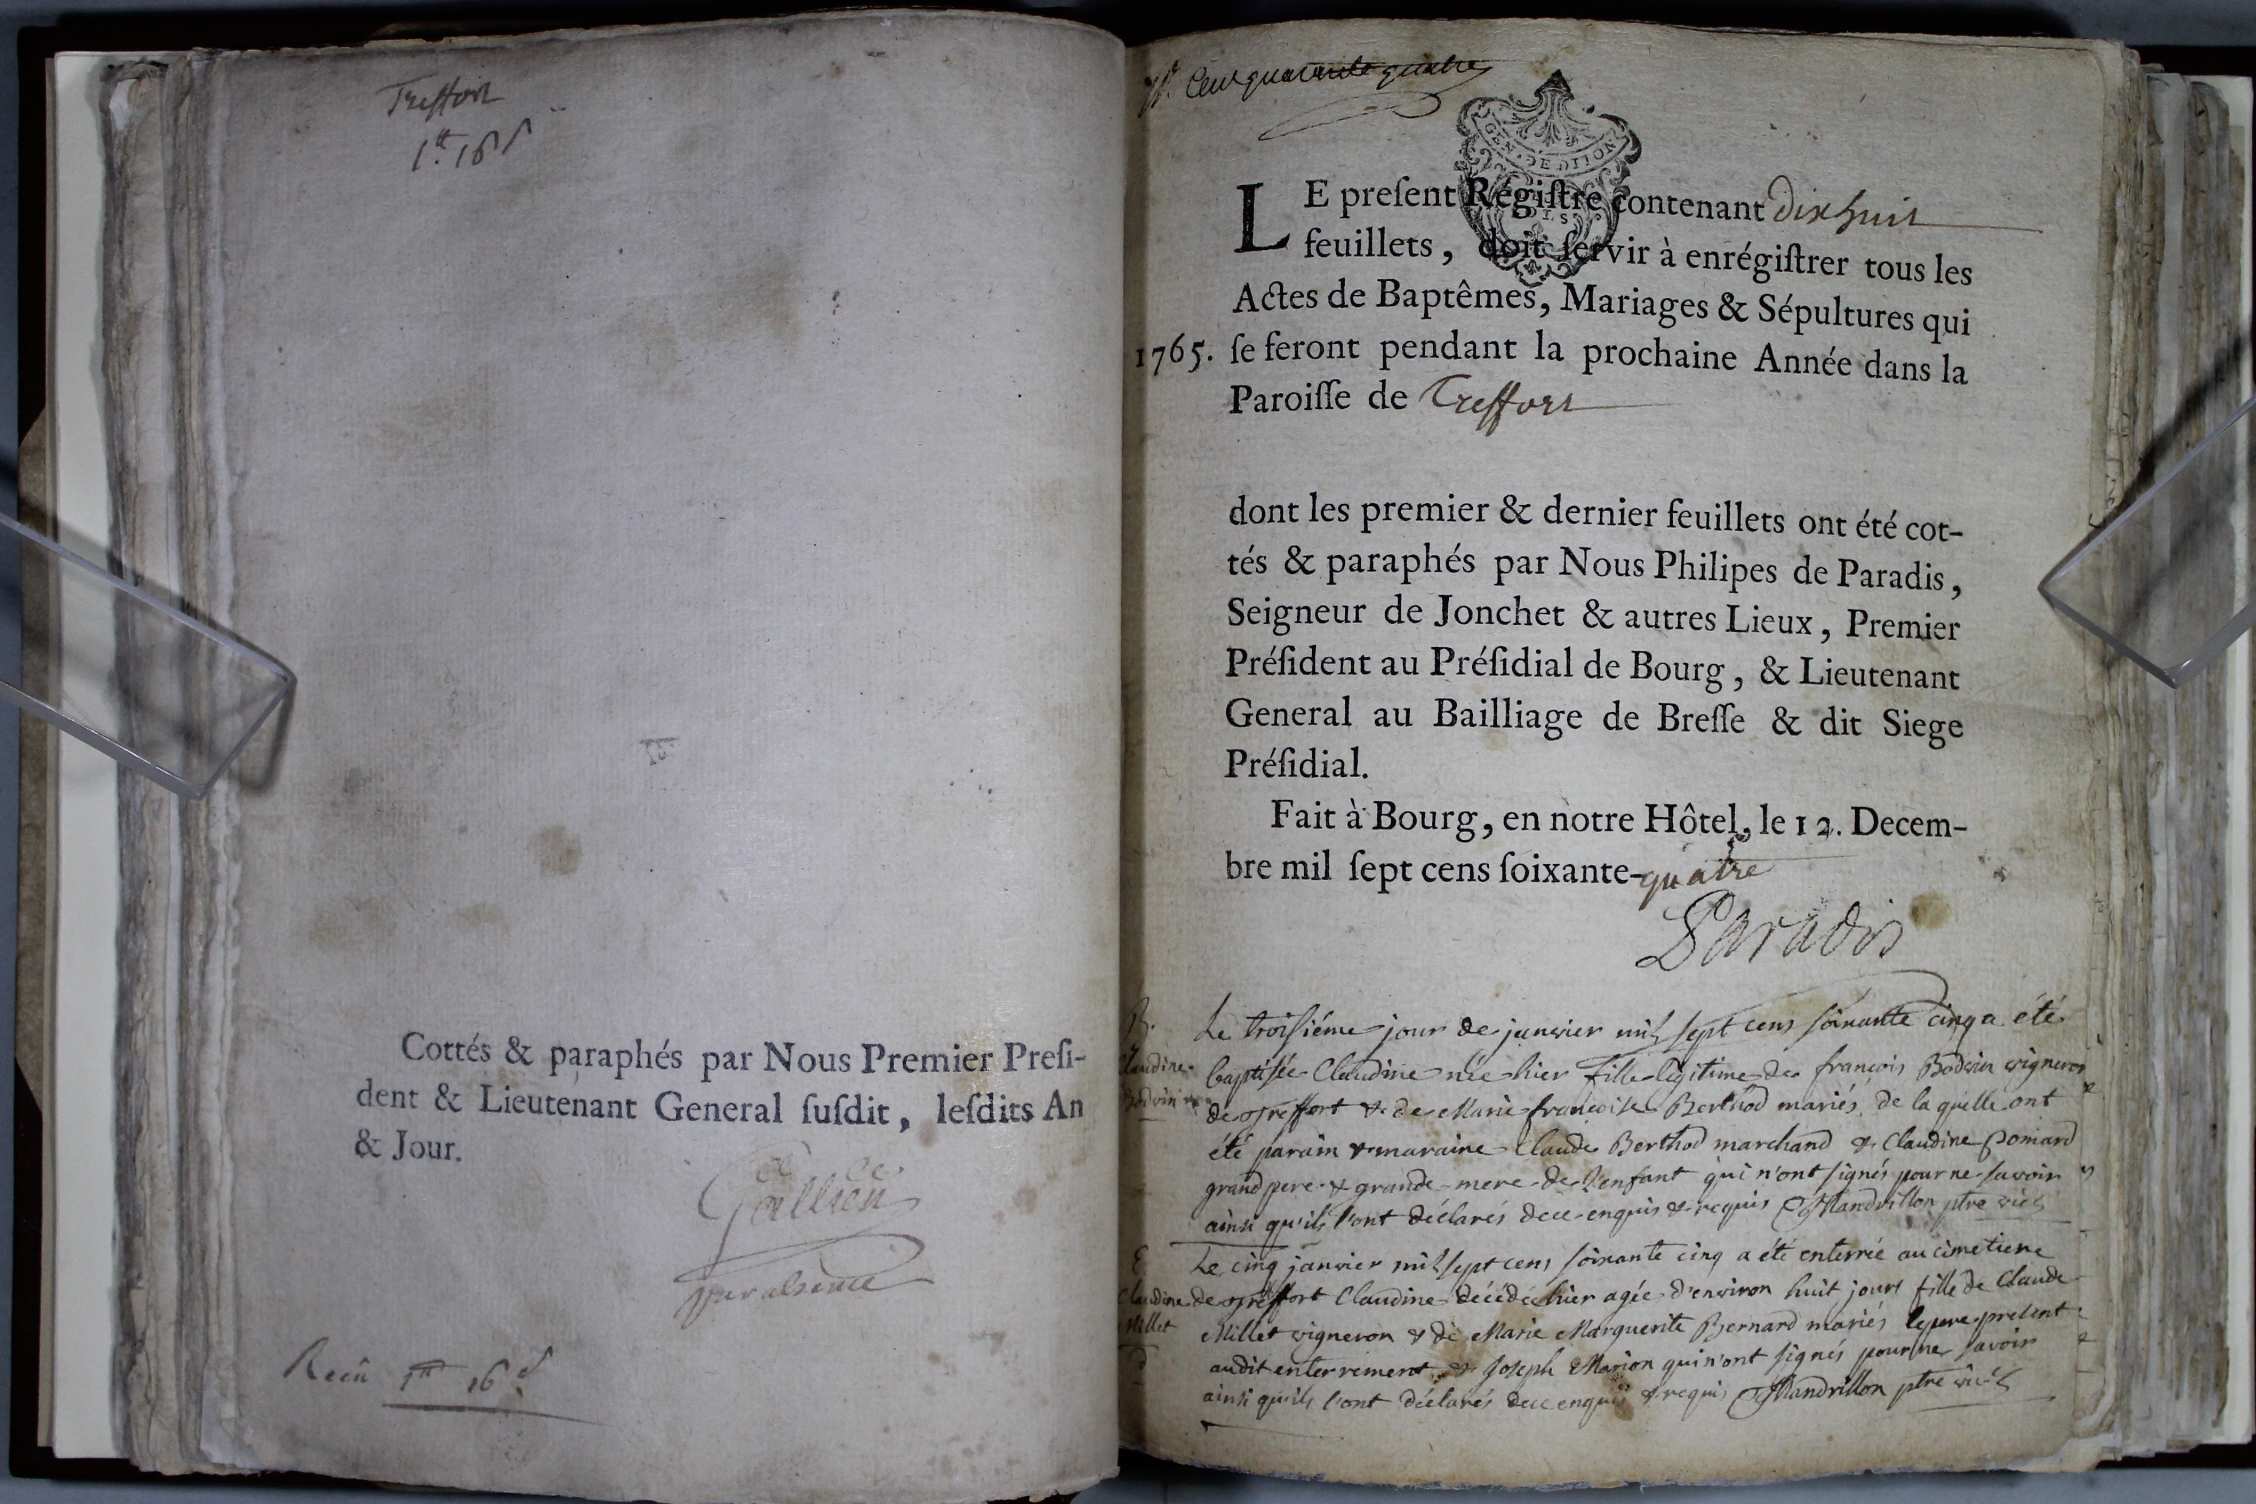 Treffort
1.tt 16 s
Cottés & paraphés par Nous Premier Presi-
dent & Lieutenant General susdit, lesdits An
& Jour.
par absence
Recû 1tt 16 s
N°. Cent quarante quatre
GEN. DE DIJON
LE present Régistre contenant dix huit
feuillets, doit servir à enrégistrer tous les
Actes de Baptêmes, Mariages & Sépultures qui
1765. se feront pendant la prochaine Année dans la
Paroisse de Treffort
dont les premier & dernier feuillets ont été cot-
tés & paraphés par Nous Philipes de Paradis,
Seigneur de Jonchet & autres Lieux, Premier
Président au Présidial de Bourg, & Lieutenant
General au Bailliage de Bresse & dit Siege
Présidial.
Fait à Bourg, en notre Hôtel, le 12. Decem-
bre mil sept cens soixante-quatre
Paradis
B.
Claudine
Bodvin
Le troisiéme jour de janvier mil sept cens soixante cinq a été
baptisée Claudine née hier fille legitime de françois Bodvin vigneron
de treffort & de Marie françoise Berthod mariés, de la quelle ont
été parain & maraine Claude Berthod marchand & Claudine Poniard
grand pere & grande mere de l'enfant qui n'ont signés pour ne savoir
ainsi qu'ils l'ont déclarés de ce enquis & requis Mandrillon ptre vic.
E
Claudine
Millet
Le cinq janvier mil sept cens soixante cinq a été enterrée au cimetiere
de treffort Claudine décédée hier agée d'environ huit jours fille de Claude
Millet vigneron & de Marie Marguerite Bernard mariés le pere present
audit enterrement & Joseph Marion qui n'ont signés pour ne savoir
ainsi qu'ils l'ont déclarés de ce enquis & requis Mandrillon ptre vic.